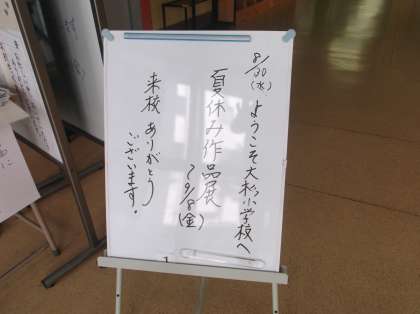 8/30(水) ようこそ大杉小学校へ
夏休み作品展
~9/8(金)
来校 ありがとう
ございます。